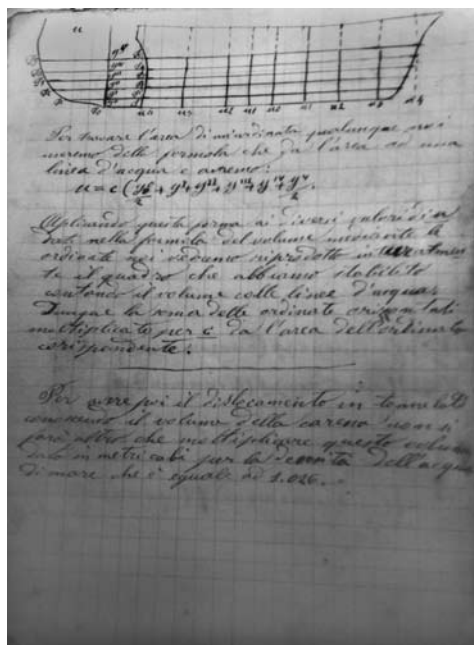 u
Per trovare l'area di un'ordinata qualunque noi
useremo della formola che da l'area ad una
linea d'acqua e avremo:
u = c (y⁰/2 + yᴵ + yᴵᴵ + yᴵᴵᴵ + yᴵⱽ + yⱽ/2).
Aplicando questa forma ai diversi valori di u
dati nella formola del volume mediante le
ordinate noi vedremo riprodotto
il quadro che abbiamo stabilito
contando il volume colle linee d'acqua
Dunque la soma delle ordinate orizontali
moltiplicate per c da l'area dell'ordinata
corispondente:
Per avere poi il dislocamento in tonnelate
conoscendo il volume della carena non si
farà altro che moltiplicare questo volume
dato in metri cubi per la densità dell'acqua
di mare che è eguale ad 1.026.